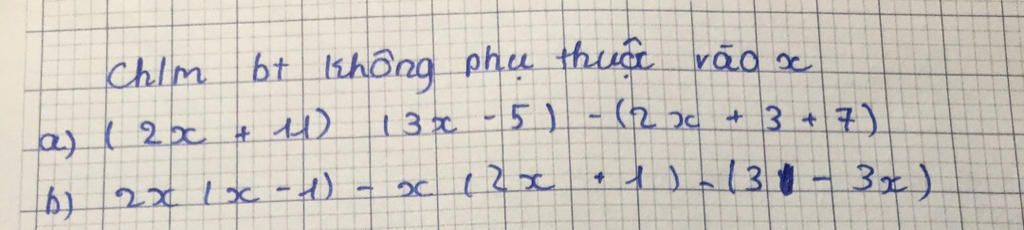 Chlm bt không phụ thuộc vào x
a) (2x + 11) (3x - 5) - (2x + 3 + 7)
b) 2x (x - 1) - x (2x + 1) - (3 - 3x)